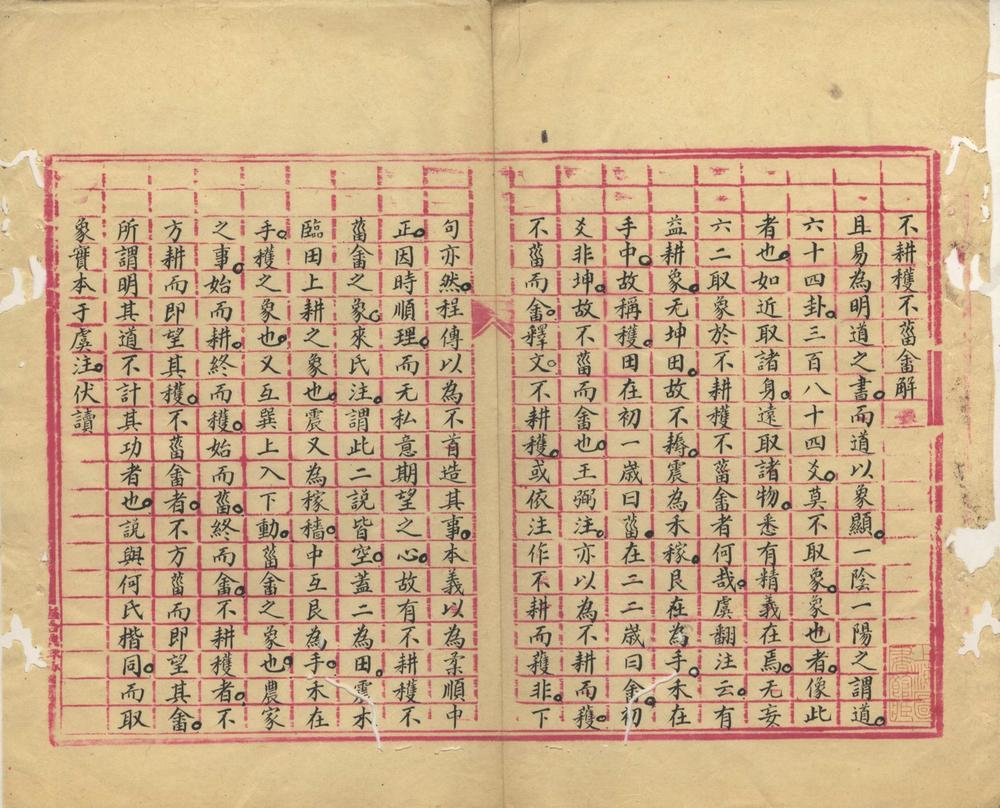 不耕穫不菑畬解
且易為明道之書。而道以象顯。一陰一陽之謂道。
六十四卦。三百八十四爻。莫不取象。象也者。像此
者也。如近取諸身。遠取諸物。悉有精義在焉。无妄
六二取象於不耕穫不菑畬者何哉。虞翻注云。有
益耕象。无坤田。故不耨。震為禾稼。艮在為手。禾在
手中。故稱穫。田在初一歲曰菑。在二二歲曰畬。初
爻非坤。故不菑而畬也。王弼注。亦以為不耕而穫。
不菑而畬。釋文。不耕穫。或依注作不耕而穫非。下
句亦然。程傳以為不首造其事。本義以為柔順中
正。因時順理。而无私意期望之心。故有不耕穫不
菑畬之象。來氏注。謂此二說皆空。蓋二為田。震木
臨田上耕之象也。震又為稼穡。中互艮為手。禾在
手。穫之象也。又互巽上入下動。菑畬之象也。農家
之事。始而耕。終而穫。始而菑。終而畬。不耕穫者。不
方耕而即望其穫。不菑畬者。不方菑而即望其畬。
所謂明其道不計其功者也。說與何氏楷同。而取
象實本于虞注。伏讀